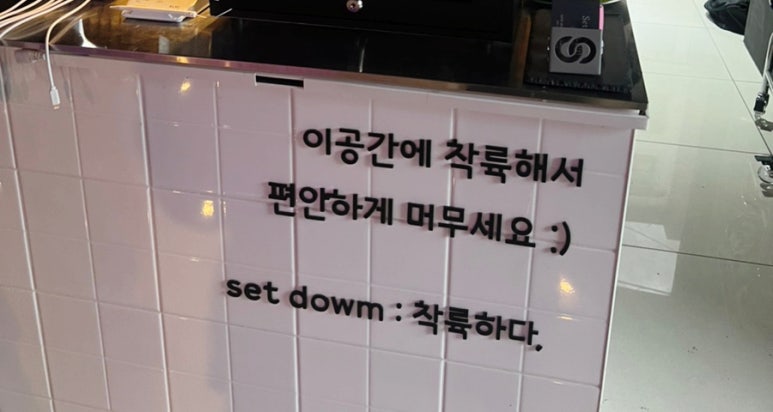 이공간에 착륙해서
편안하게 머무세요 :)
set dowm : 착륙하다.